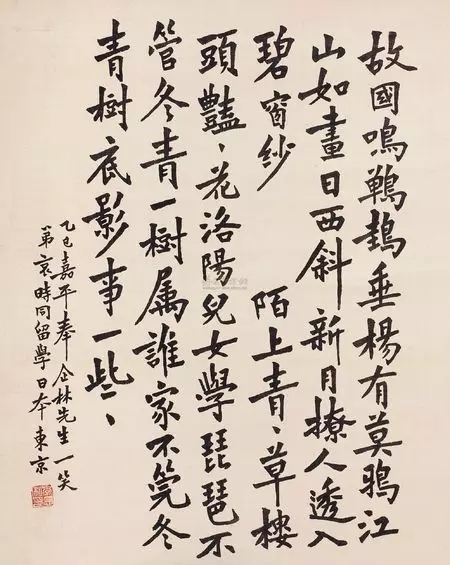 故國鳴垂楊有莫鴉江
山如畫日西斜新月撩人透入
碧窗紗 陌上青、草樓
頭豔、花洛陽兒女學琵琶不
管冬青一樹属誰家不筦冬
青樹底影事一些、
乙巳嘉平奉企林先生一笑
弟哀時同留學日本東京